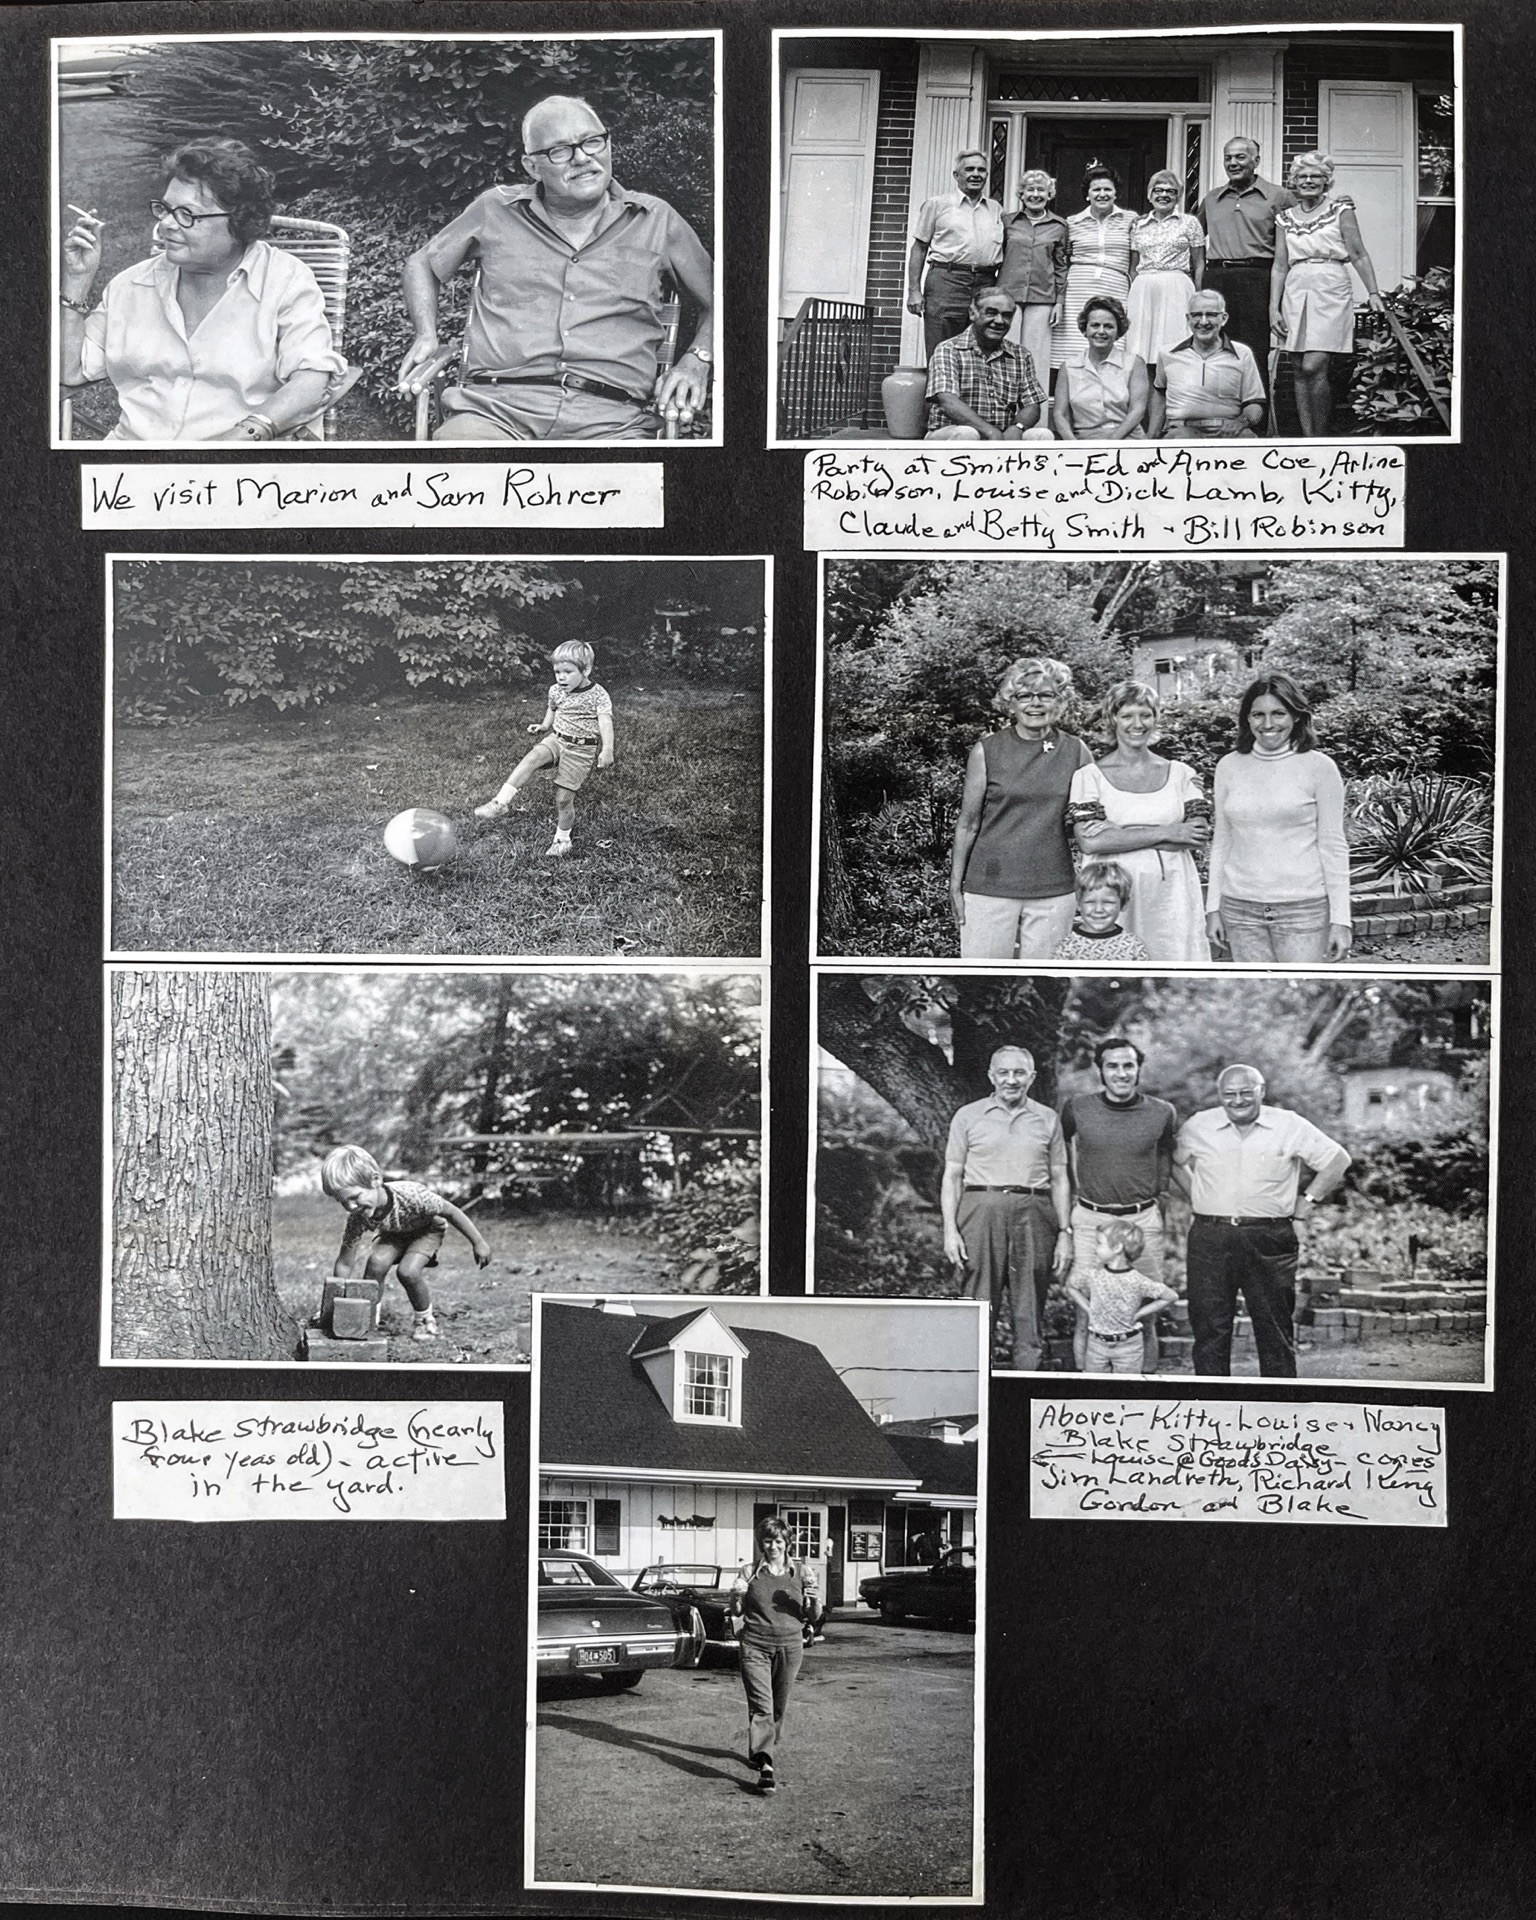 We visit Marion and Sam Rohrer
Party at Smith's:- Ed and Anne Coe, Arline
Robinson, Louise and Dick Lamb, Kitty,
Claude and Betty Smith - Bill Robinson
Blake Strawbridge (nearly
four yeas old) - active
in the yard.
Above:- Kitty-Louise + Nancy
Blake Strawbridge
← Louise @ Goods Dairy - cones
Jim Landreth, Richard King
Gordon and Blake